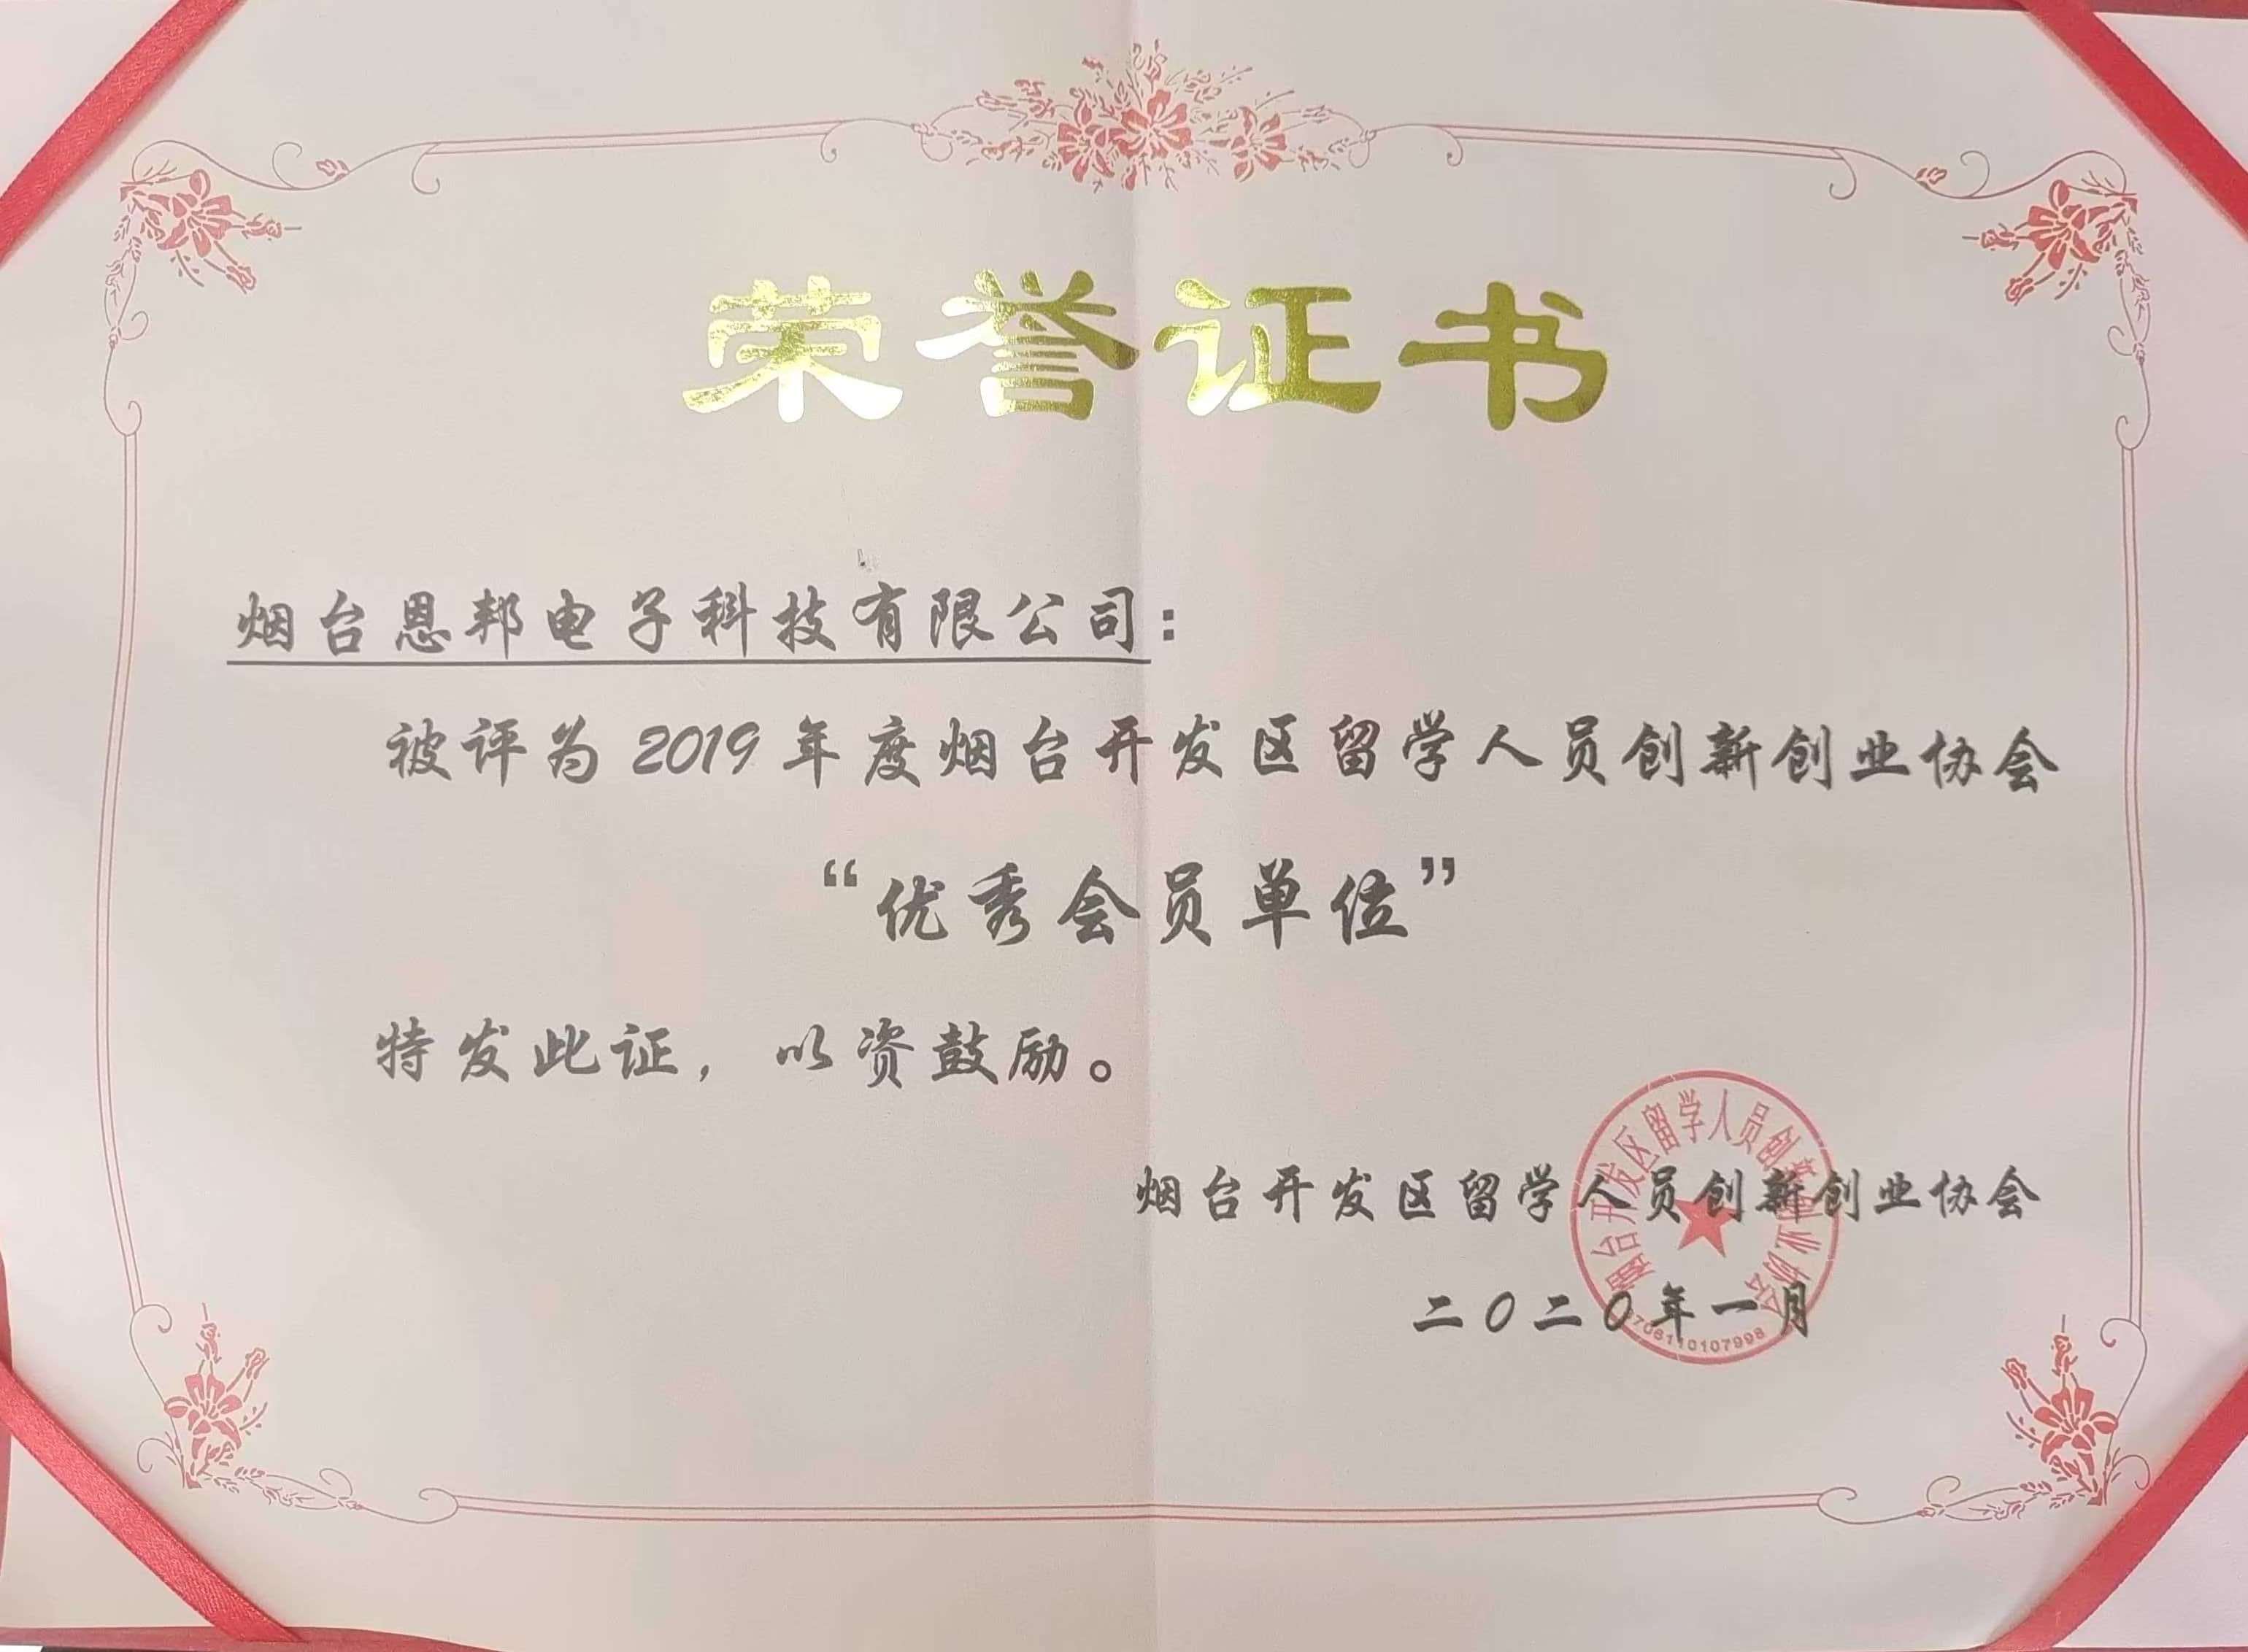 荣誉证书
烟台恩邦电子科技有限公司：
被评为2019年度烟台开发区留学人员创新创业协会
“优秀会员单位”
特发此证，以资鼓励。
烟台开发区留学人员创新创业协会
二〇二〇年一月
烟台开发区留学人员创新创业协会
706110107998